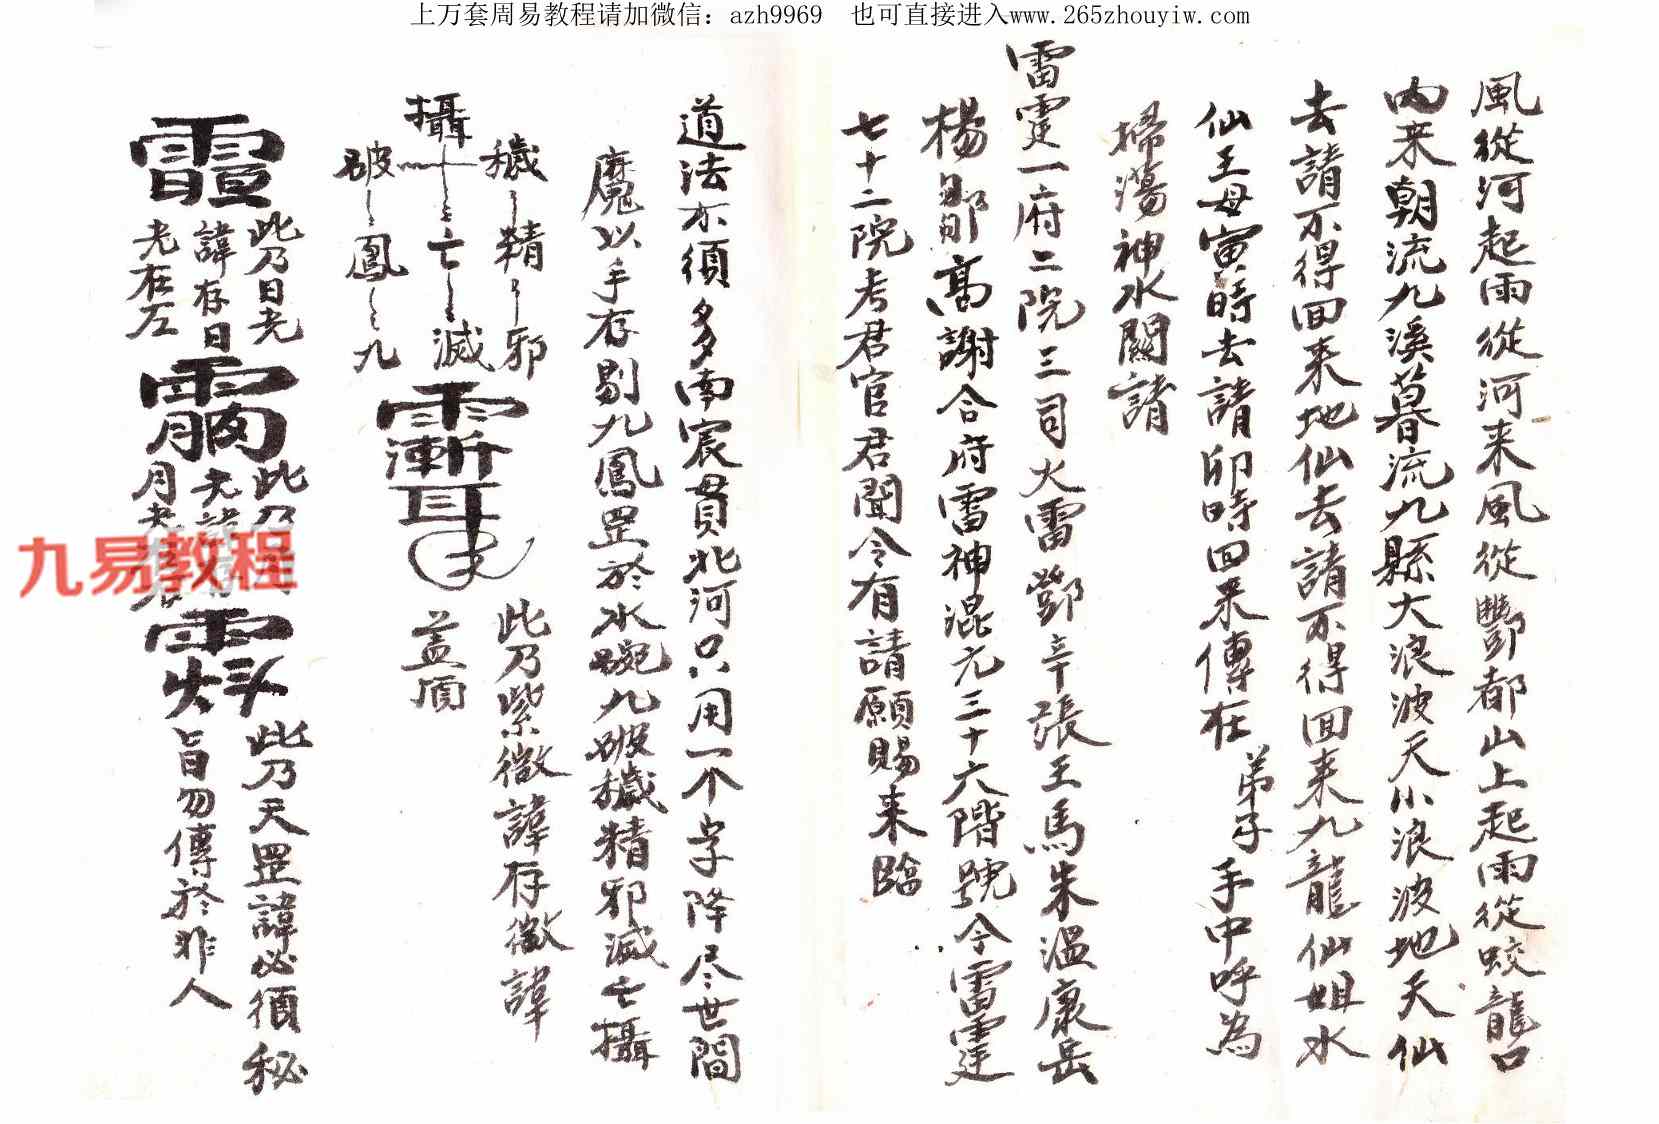 上万套周易教程请加微信：azh9969　也可直接进入www.265zhouyiw.com
風從河起雨從河来風從酆都山上起雨從蛟龍口
内来朝流九溪暮流九縣大浪波天小浪波地天仙
去請不得回来地仙去請不得回来九龍仙姐水
仙王母寅時去請卯時回来傳在弟子手中呼為
掃蕩神水關請
雷霆一府二院三司火雷鄧辛張王馬朱溫康岳
楊鄒高謝合府雷神混元三十六階號令雷霆
七十二院考君官君聞令有請願賜来臨
道法不須多南宸貫北河只用一个字降尽世間
魔以手存剔九鳳罡於水碗九破穢精邪滅亡攝
穢 精 邪
攝 亡 滅
破 鳳 九
此乃紫微諱存微諱
蓋頂
此乃日光
諱存日
光在左
此乃月
月
此乃天罡諱必須秘
旨勿傳於非人
九易教程